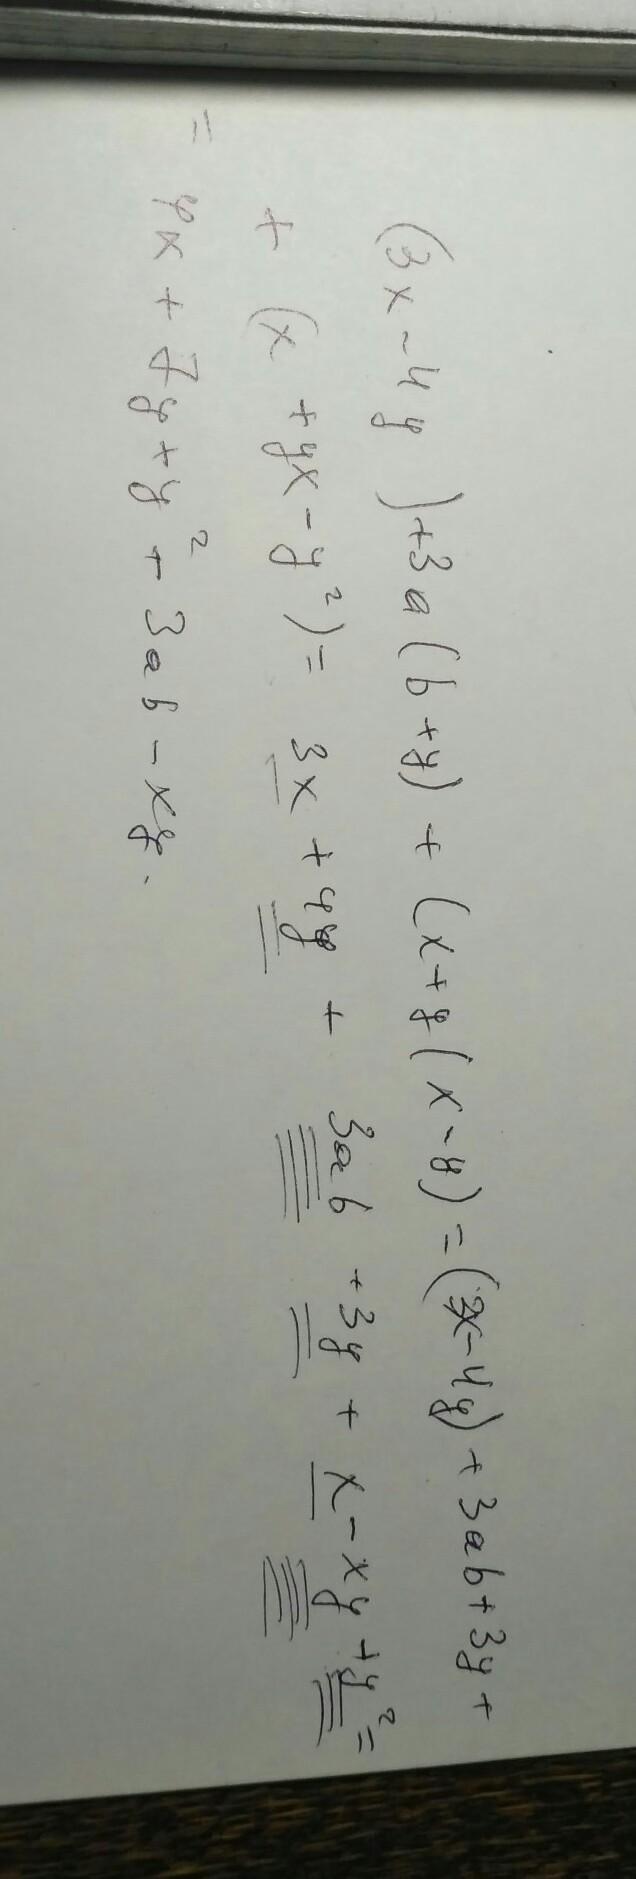 (3x-4y)+3a(b+y)+(x+y(x-y)=(3x-4y)+3ab+3y+
+(x+yx-y²)=3x+4y+3ab+3y+x-xy+y²=
=4x+7y+y²+3ab-xy.